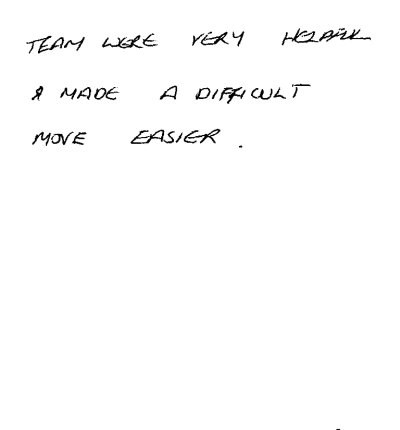 TEAM WERE VERY HELPFUL
& MADE A DIFFICULT
MOVE EASIER.